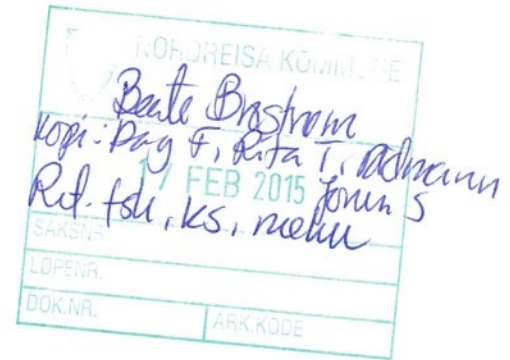 NORDREISA KOMMUNE
Beate Brostrøm
kopi: Dag F, Rita T, rådmann
17 FEB 2015 Jonin S
Ref. fsk, ks,
SAKSNR.
LØPENR.
DOK.NR. ARK.KODE